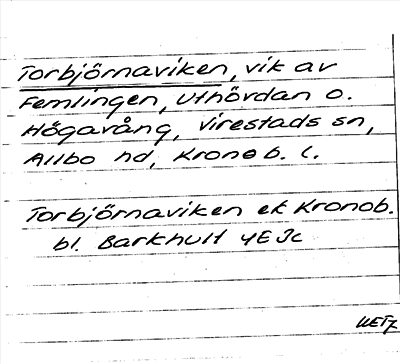 Torbjörnaviken, vik av
Femlingen, uthördan o.
Högavång, Virestads sn,
Allbo hd, Kronob. l.
Torbjörnaviken ek Kronob.
bl. Barkhult 4E Jc